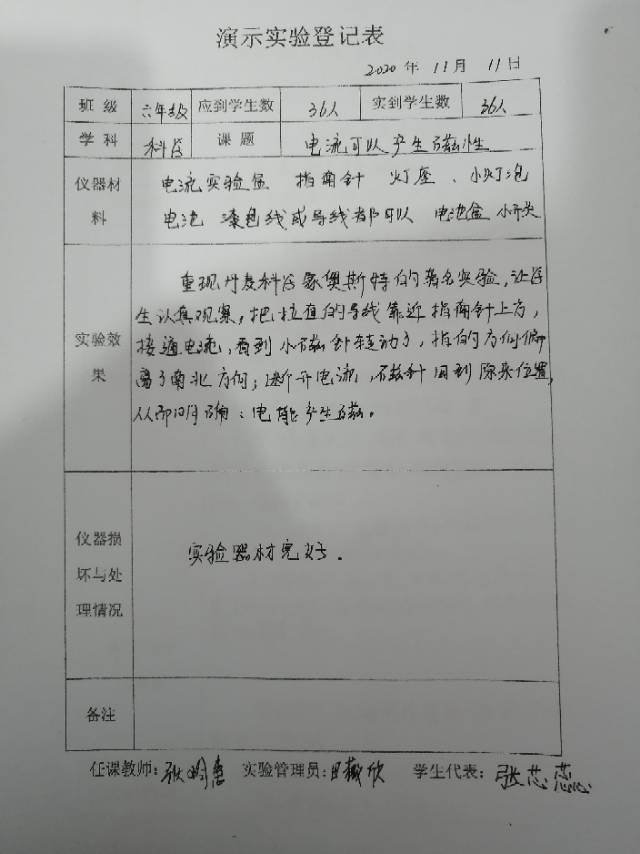 演示实验登记表
2020 年 11 月 11 日
班 级 六年级 应到学生数 36人 实到学生数 36人
学 科 科学 课 题 电流可以产生磁性
仪器材 电流实验盒 指南针 灯座、小灯泡
料 电池 漆包线或导线都可以 电池盒 小开关
重现丹麦科学家奥斯特的著名实验,让学
生认真观察,把拉直的导线靠近指南针上方,
实验效 接通电流,看到小磁针转动了,指的方向偏
果 离了南北方向;断开电流,磁针回到原来位置,
从而明确:电能产生磁。
仪器损
坏与处 实验器材完好.
理情况
备注
任课教师: 张 实验管理员: 欣 学生代表: 张芯蕊